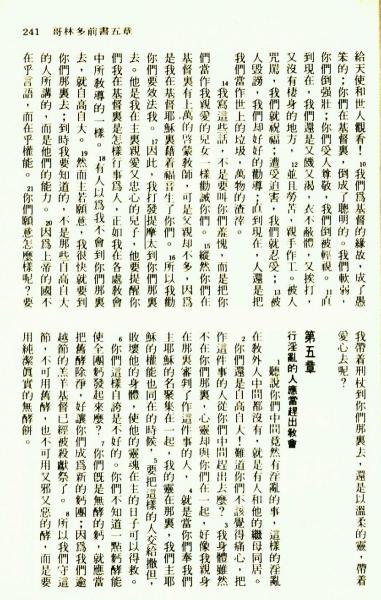 241　哥林多前書五章
給天使和世人觀看，10我們爲基督的緣故，成了愚
笨的；你們在基督裏，倒成了聰明的。我們軟弱，
你們倒強壯；你們受人尊敬，我們倒被輕視。11直
到現在，我們還是又饑又渴，衣不蔽體，又挨打，
又沒有棲身的地方，12並且勞苦，親手作工。被人
咒罵，我們就祝福；遭受迫害，我們就忍受；13被
人毀謗，我們却好好的勸導；直到現在，人還是把
我們當作世上的垃圾，萬物的渣滓。
14我寫這些話，不是要叫你們羞愧，而是把你
們當作我親愛的兒女一樣勸誡你們。15縱然你們在
基督裏有上萬的啓蒙教師，可是父親却不多，因爲
是我在基督耶穌裏藉着福音生了你們。16所以我勸
你們要效法我。17因此，我打發提摩太到你們那裏
去。他是我在主裏親愛又忠心的兒子，他要提醒你
們我在基督裏是怎樣行事爲人，正如我在各處教會
中所教導的一樣。18有人以爲我不會到你們那裏
去，就自高自大。19然而主若願意，我很快就要到
你們那裏去；到時我要知道的，不是那些自高自大
的人所講的，而是他們的能力。20因爲上帝的國不
在乎言語，而在乎權能。21你們願意怎麼樣呢？要
我帶着刑杖到你們那裏去，還是以溫柔的靈，帶着
愛心去呢？
第五章
行淫亂的人應當趕出教會
1聽說你們中間竟然有淫亂的事，這樣的淫亂
在教外人中間都沒有，就是有人和他的繼母同居。
2你們還是自高自大！難道你們不該覺得痛心，把
作這件事的人從你們中間趕出去麼？3我身體雖然
不在你們那裏，心靈却與你們在一起，好像我親身
在那裏審判了作這件事的人，4就是當你們奉我們
主耶穌的名聚集在一起，我的靈在那裏，我們主耶
穌的權能也同在的時候，5要把這樣的人交給撒但，
敗壞他的身體，使他的靈魂在主的日子可以得救。
6你們這樣自誇是不好的。你們不知道一點麪酵能
使全團麪發起來麼？7你們旣是無酵的麪，就應當
把舊酵除淨，好讓你們成爲新的麪團；因爲我們逾
越節的羔羊基督已經被殺獻祭了。8所以我們守這
節，不可用舊酵，也不可用又邪又惡的酵，而是要
用純潔眞實的無酵餅。